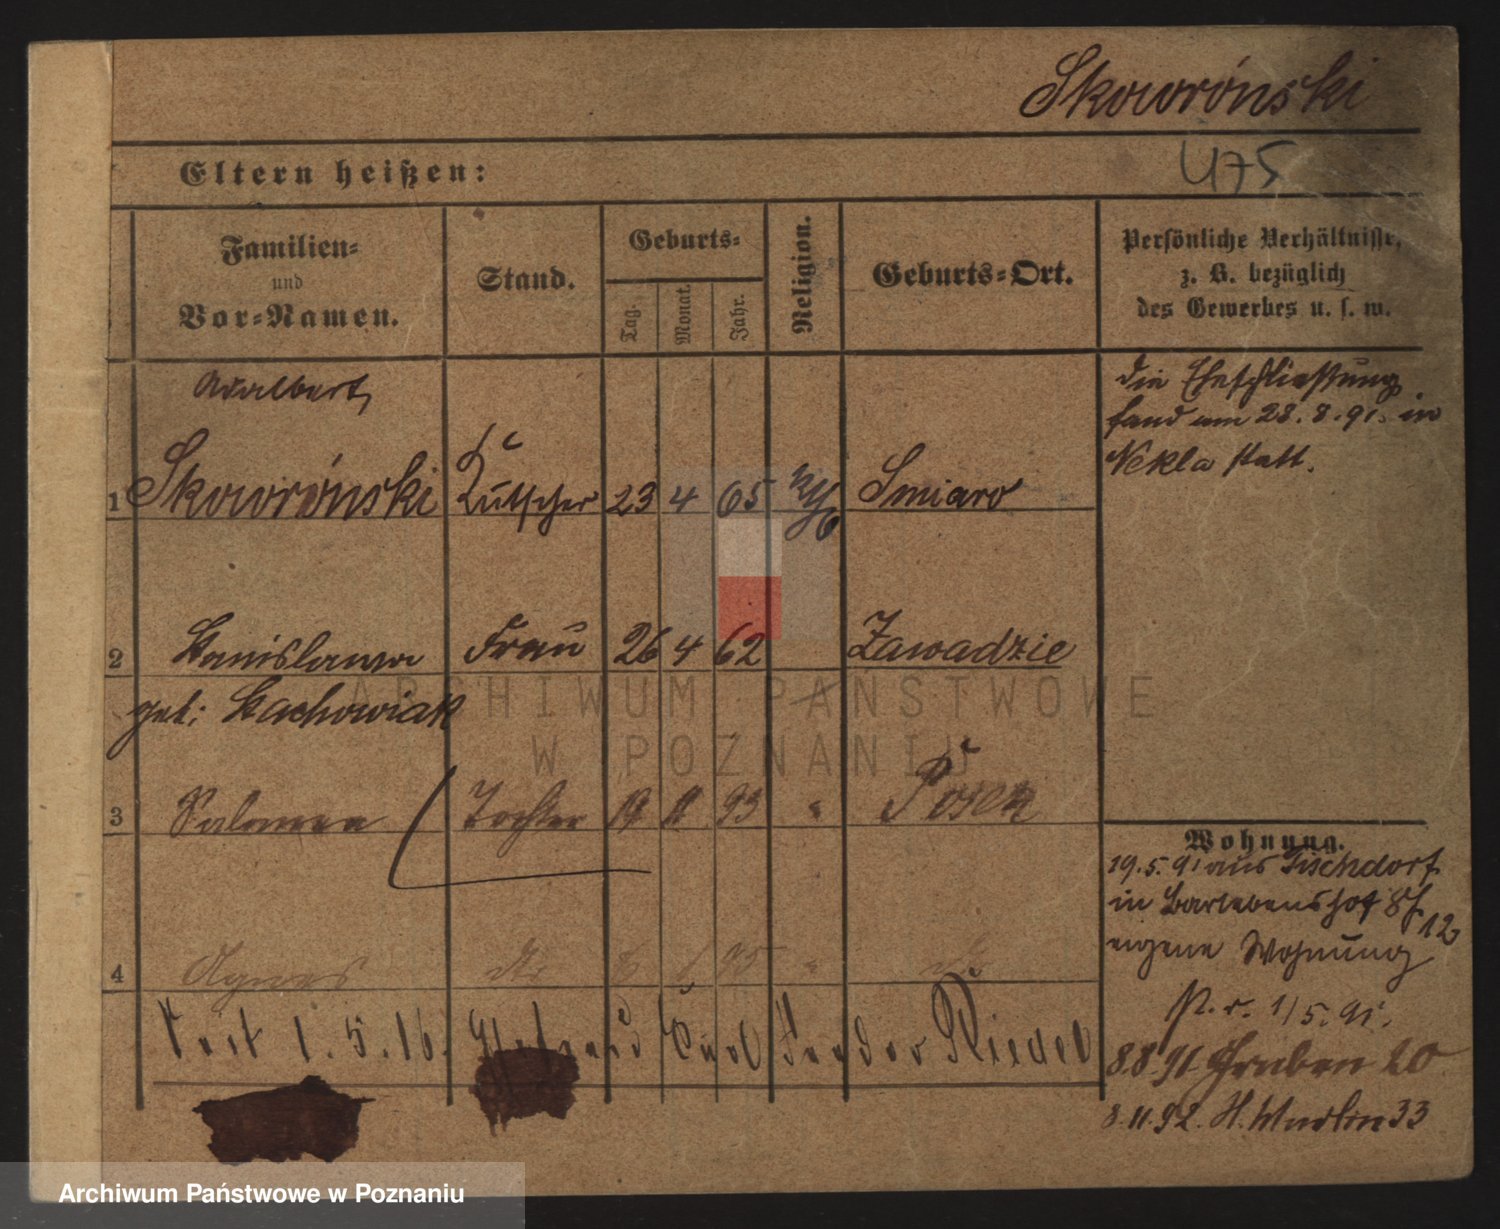 Skoworónski
475
Eltern heißen:
Familien-
und
Vor-Namen.
Stand.
Geburts-
Tag.
Monat.
Jahr.
Religion.
Geburts-Ort.
Persönliche Verhältnisse,
z. B. bezüglich
des Gewerbes u. s. w.
die Eheschliessung
fand am 28. 8. 91. in
Nekla statt.
Adalbert,
1 Skoworónski Kutscher 23 4 65 Smiaro
2 Stanislawa Frau 26 4 62 Zawadzie
geb: Stachowiak
3 Salomea Tochter 19 11 93 " Posen
4 Agnes do 1 75 "
seit 1. 5. 16. Riedel
Wohnung.
19. 5. 91 aus Tischdorf
in Bartebenshof 8 f.
12
eigene Wohnung
N. v. 1/5. 91.
8.8.91 Gruben 20
8. 11. 92. H. Wudlin 33
ARCHIWUM PAŃSTWOWE
W POZNANIU
Archiwum Państwowe w Poznaniu